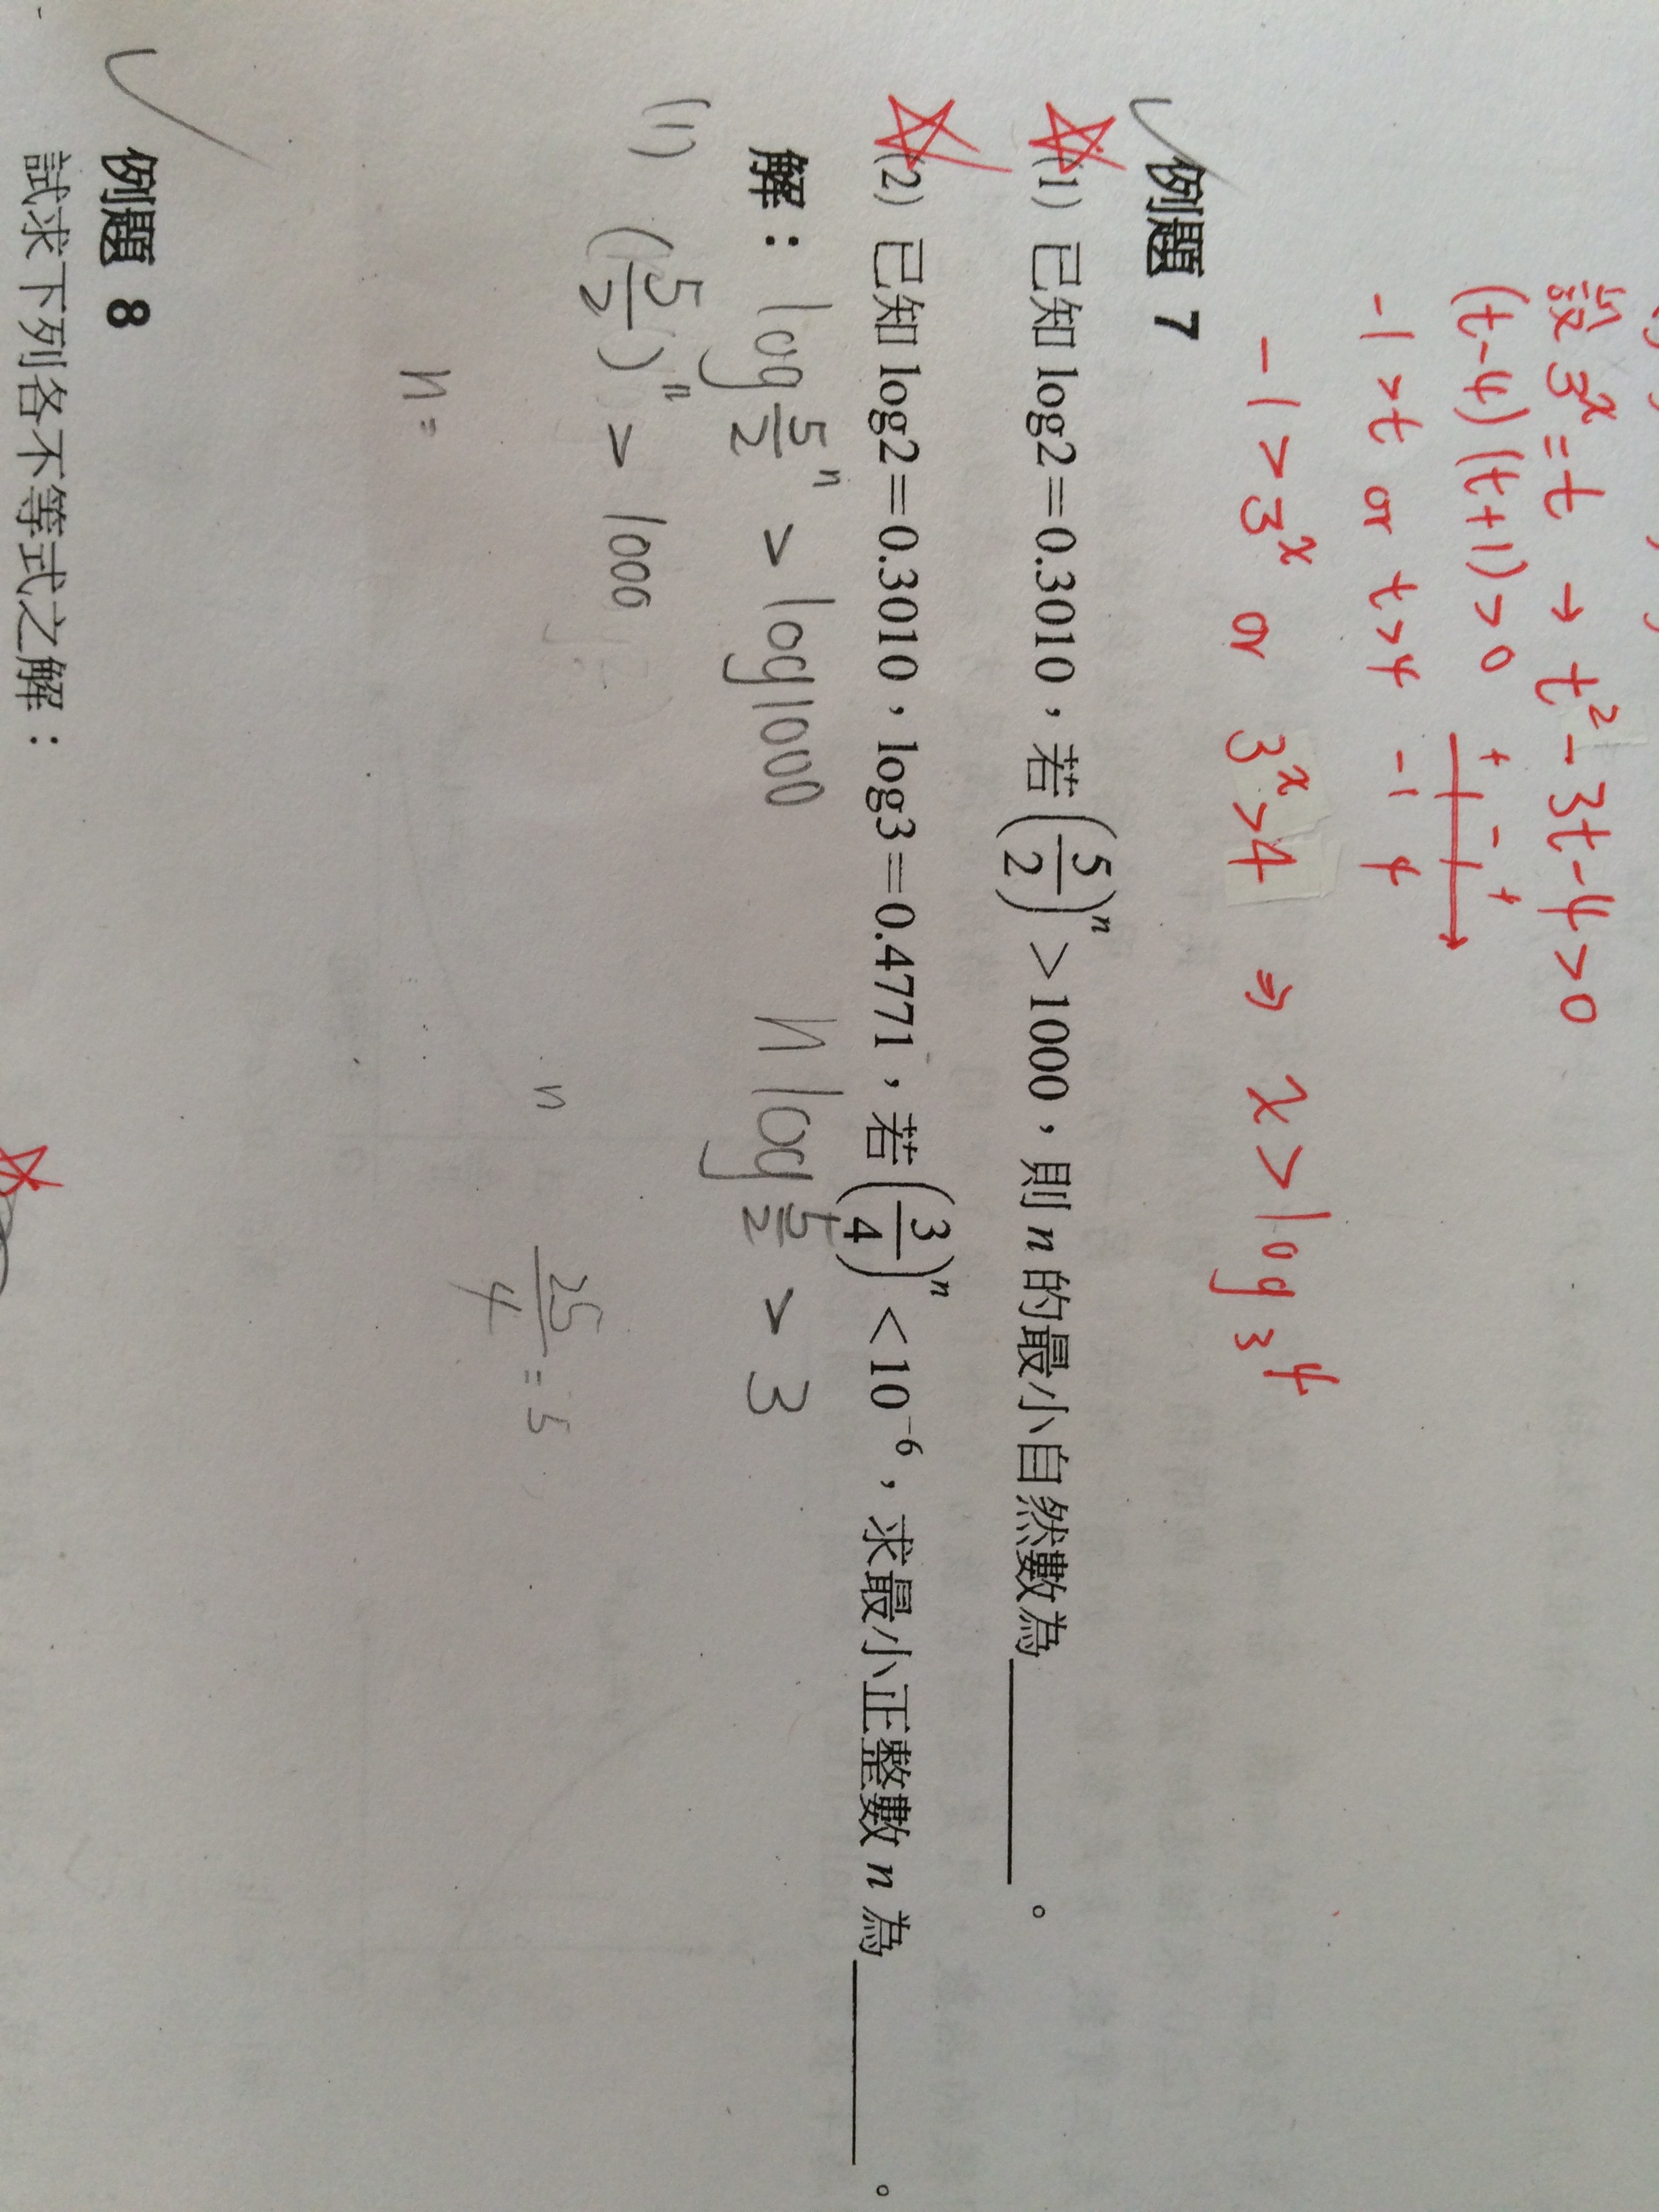 設 3^x = t → t² - 3t - 4 > 0
(t-4)(t+1) > 0 + - +
-1 > t or t > 4 -1 4
-1 > 3^x or 3^x > 4 ⇒ x > log₃4
例題 7
(1) 已知 log2=0.3010，若(5/2)^n>1000，則 n 的最小自然數為______。
(2) 已知 log2=0.3010，log3=0.4771，若(3/4)^n<10^-6，求最小正整數 n 為______。
解： log 5/2^n > log1000 n log 5/2 > 3
(1) (5/2)^n > 1000
n 25/4 = 5
n =
例題 8
試求下列各不等式之解：